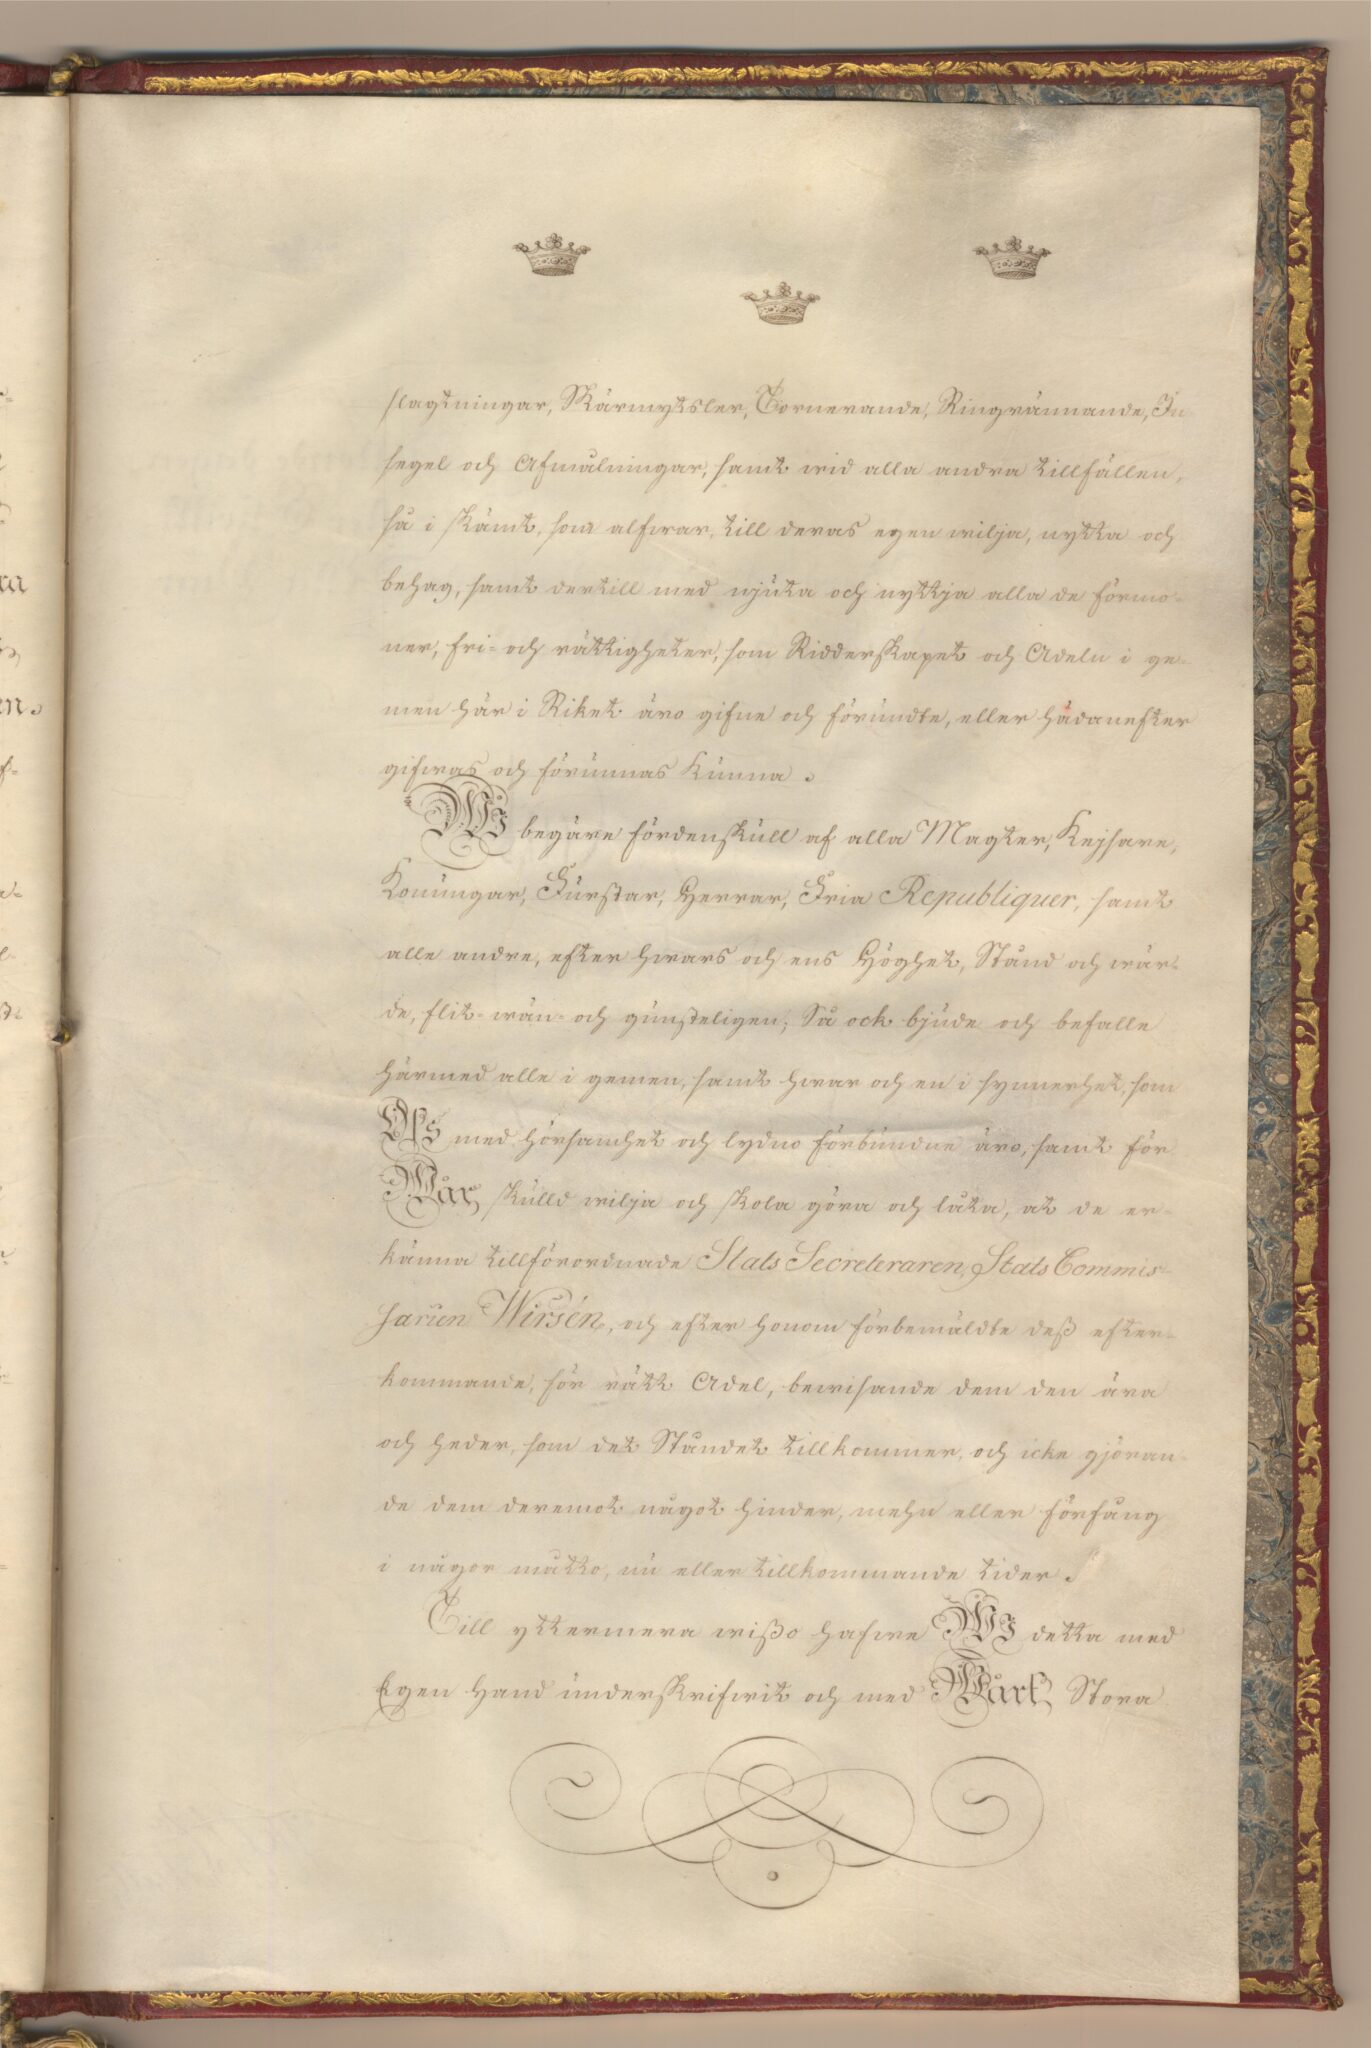 slagtningar, Skärmytsler, Tornerande, Ringrännande, In-
segel och Afmålningar, samt wid alla andra tillfällen,
så i skämt, som alfwar, till deras egen wilja, nytta och
behag, samt dertill med njuta och nyttja alla de förmo-
ner, fri- och rättigheter, som Ridderskapet och Adeln i ge-
men här i Riket äro gifne och förundte, eller hädanefter
gifwas och förunnas kunna.
WJ begäre fördenskull af alla Magter, Kejsare,
Konungar, Furstar, Herrar, Fria Republiquer, samt
alle andre, efter hwars och ens Höghet, Stånd och wär-
de, flit- wän- och gunsteligen; Så ock bjude och befalle
härmed alle i gemen, samt hwar och en i synnerhet, som
Oß med hörsamhet och lydno förbundne äro, samt för
Wår skulld wilja och skola göra och låta, at de er-
känna tillförordnade Stats Secreteraren, Stats Commis-
sarien Wirsén, och efter honom förbemäldte deß efter-
kommande, för rätt Adel, bewisande dem den ära
och heder, som det Ståndet tillkommer, och icke gjöran-
de dem deremot något hinder, mehn eller förfång
i någor måtto, nu eller tillkommande tider.
Till yttermera wißo hafwe WJ detta med
Egen Hand underskrifwit och med Wårt Stora